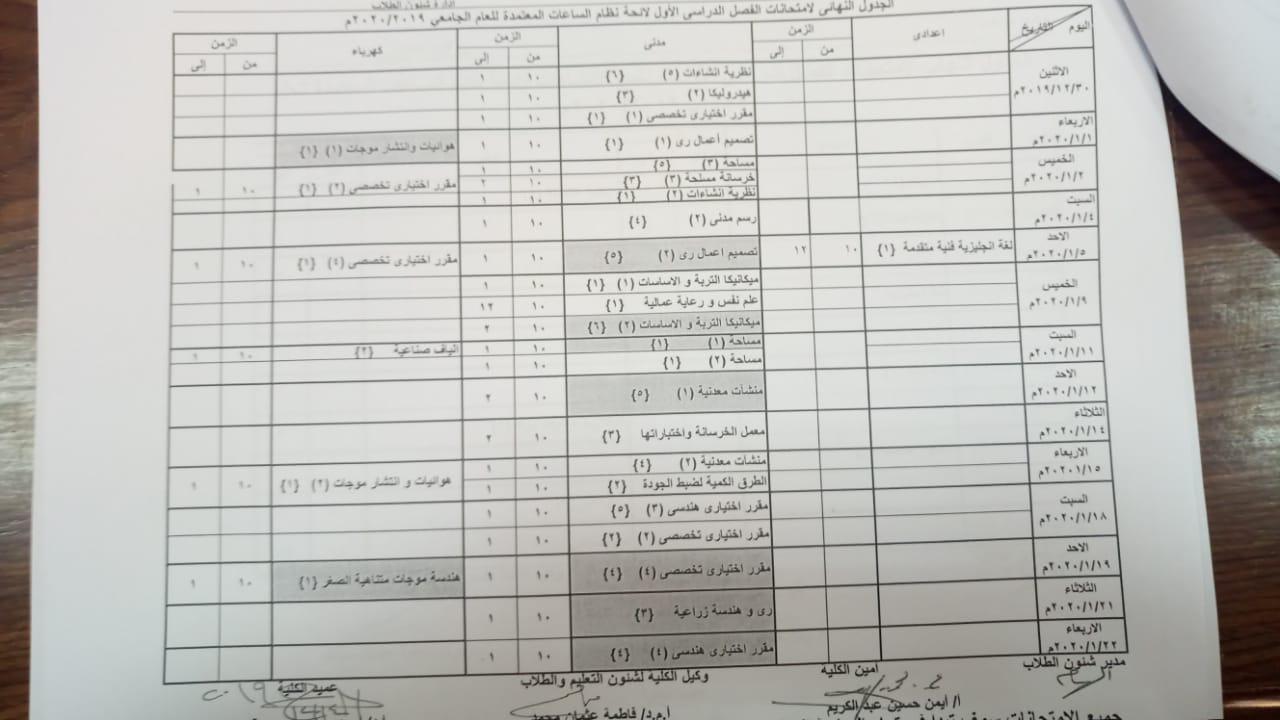 ادارة شئون الطلاب
الجدول النهائى لامتحانات الفصل الدراسى الأول لائحة نظام الساعات المعتمدة للعام الجامعي ٢٠٢٠/٢٠١٩م
اليوم التاريخ اعدادى الزمن مدنى الزمن كهرباء الزمن
من إلى من إلى من إلى
الاثنين ٢٠١٩/١٢/٣٠م نظرية انشاءات (٥) {٦} ١٠ ١
هيدروليكا (٢) {٣} ١٠ ١
مقرر اختيارى تخصصى (١) {١} ١٠ ١
الاربعاء ٢٠٢٠/١/١م تصميم أعمال رى (١) {١} ١٠ ١ هوائيات وانتشار موجات (١) {١}
الخميس ٢٠٢٠/١/٢م مساحة (٣) {٥} ١٠ ١
خرسانة مسلحة (٣) {٣} ١٠ ٢ مقرر اختيارى تخصصى (٢) {١} ١٠ ١
نظرية انشاءات (٢) {١} ١٠ ١
السبت ٢٠٢٠/١/٤م رسم مدنى (٢) {٤} ١٠ ١
الاحد ٢٠٢٠/١/٥م لغة انجليزية فنية متقدمة {١} ١٠ ١٢ تصميم اعمال رى (٢) {٥} ١٠ ١ مقرر اختيارى تخصصى (٤) {١} ١٠ ١
الخميس ٢٠٢٠/١/٩م ميكانيكا التربة و الاساسات (١) {١} ١٠ ١
علم نفس و رعاية عمالية {١} ١٠ ١٢
ميكانيكا التربة و الاساسات (٢) {٦} ١٠ ٢
السبت ٢٠٢٠/١/١١م مساحة (١) {١} ١٠ ١ الياف صناعية {٢} ١٠ ١
مساحة (٢) {١} ١٠ ١
الاحد ٢٠٢٠/١/١٢م منشآت معدنية (١) {٥} ١٠ ٢
الثلاثاء ٢٠٢٠/١/١٤م معمل الخرسانة واختباراتها {٣} ١٠ ٢
الاربعاء ٢٠٢٠/١/١٥م منشآت معدنية (٢) {٤} ١٠ ١ هوائيات و انتشار موجات (٢) {١} ١٠ ١
الطرق الكمية لضبط الجودة {٢} ١٠ ١
السبت ٢٠٢٠/١/١٨م مقرر اختيارى هندسى (٣) {٥} ١٠ ١
مقرر اختيارى تخصصى (٢) {٢} ١٠ ١
الاحد ٢٠٢٠/١/١٩م مقرر اختيارى تخصصى (٤) {٤} ١٠ ١ هندسة موجات متناهية الصغر {١} ١٠ ١
الثلاثاء ٢٠٢٠/١/٢١م رى و هندسة زراعية {٣} ١٠ ١
الاربعاء ٢٠٢٠/١/٢٢م مقرر اختيارى هندسى (٤) {٤} ١٠ ١
مدير شئون الطلاب امين الكلية وكيل الكلية لشئون التعليم والطلاب عميد الكلية
أ/ ايمن حسين عبد الكريم أ.م.د/ فاطمة عثمان محمد
جميع الامتحانات